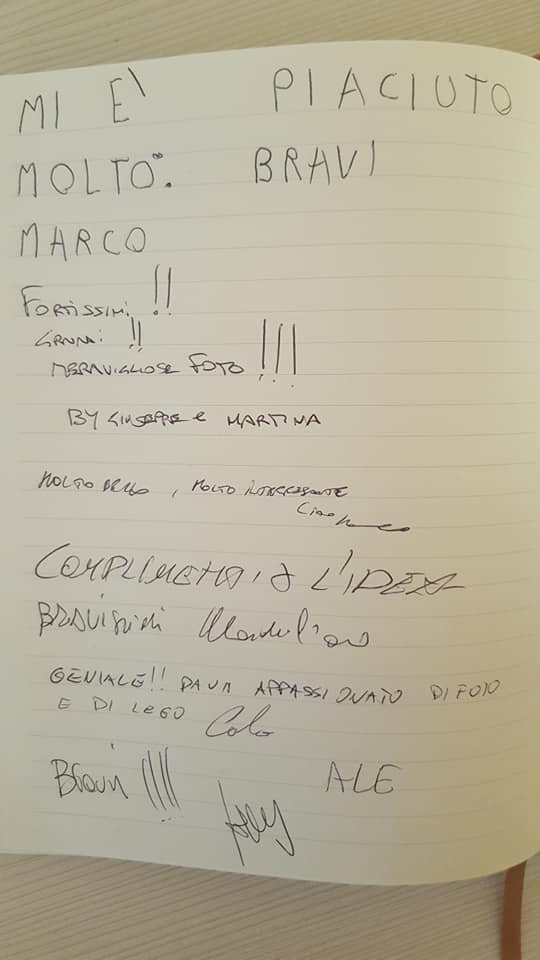 MI E' PIACIUTO
MOLTO. BRAVI
MARCO
FORTISSIMI !!
GRANDI !!
MERAVIGLIOSE FOTO !!!
BY GIUSEPPE e MARTINA
MOLTO BELLO, MOLTO INTERESSANTE
Ciao
COMPLIMENTI, L'IDEA
BRAVISSIMI
GENIALE!! DA UN APPASSIONATO DI FOTO
E DI LEGO
Bravi !!!!
ALE